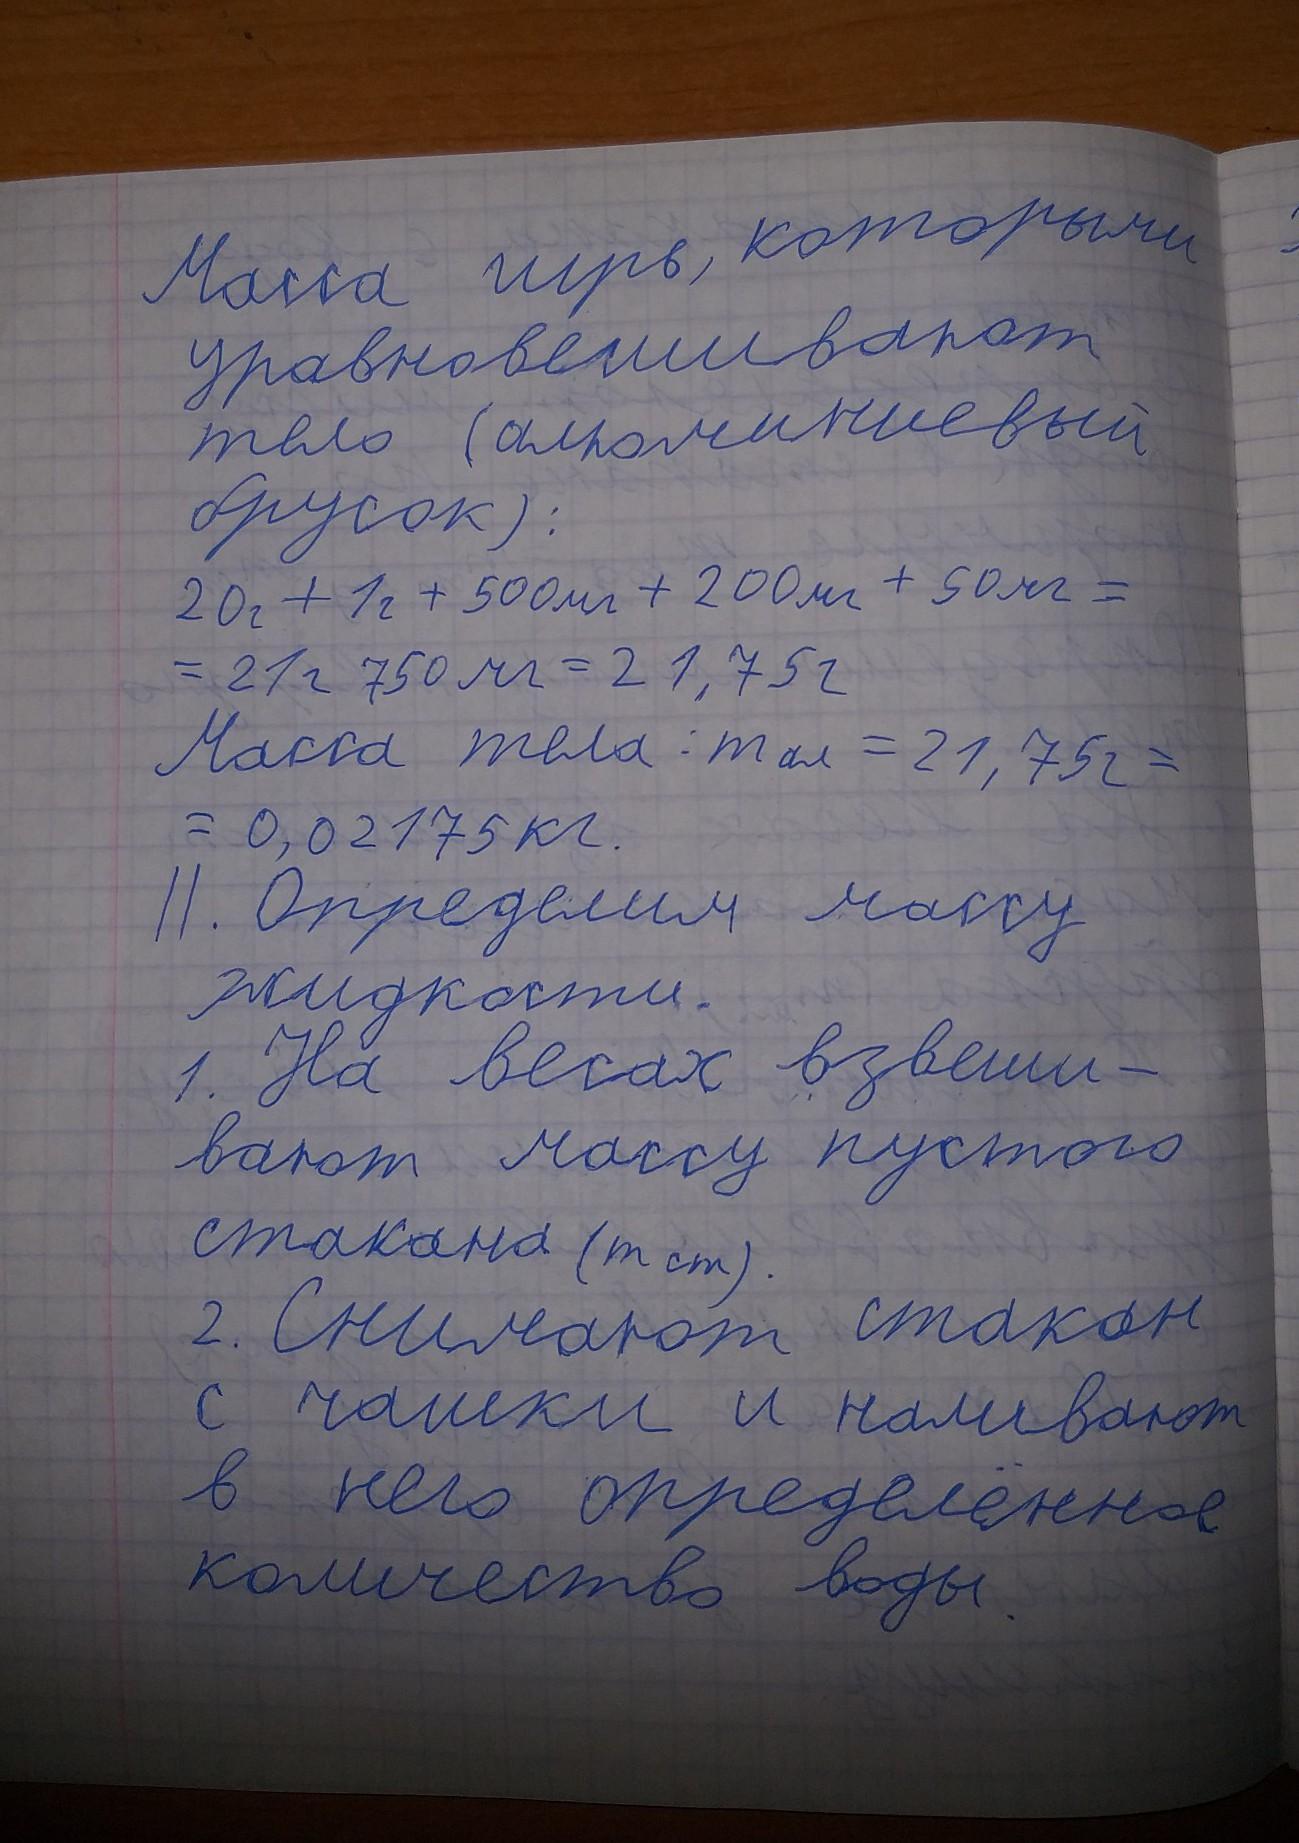 Масса гирь, которыми
уравновешивают
тело (алюминиевый
брусок):
20г + 1г + 500мг + 200мг + 50мг =
= 21г 750мг = 21,75г
Масса тела: m ал = 21,75г =
= 0,02175кг.
II. Определим массу
жидкости.
1. На весах взвеши-
вают массу пустого
стакана (m ст).
2. Снимают стакан
с чашки и наливают
в него определённое
количество воды.